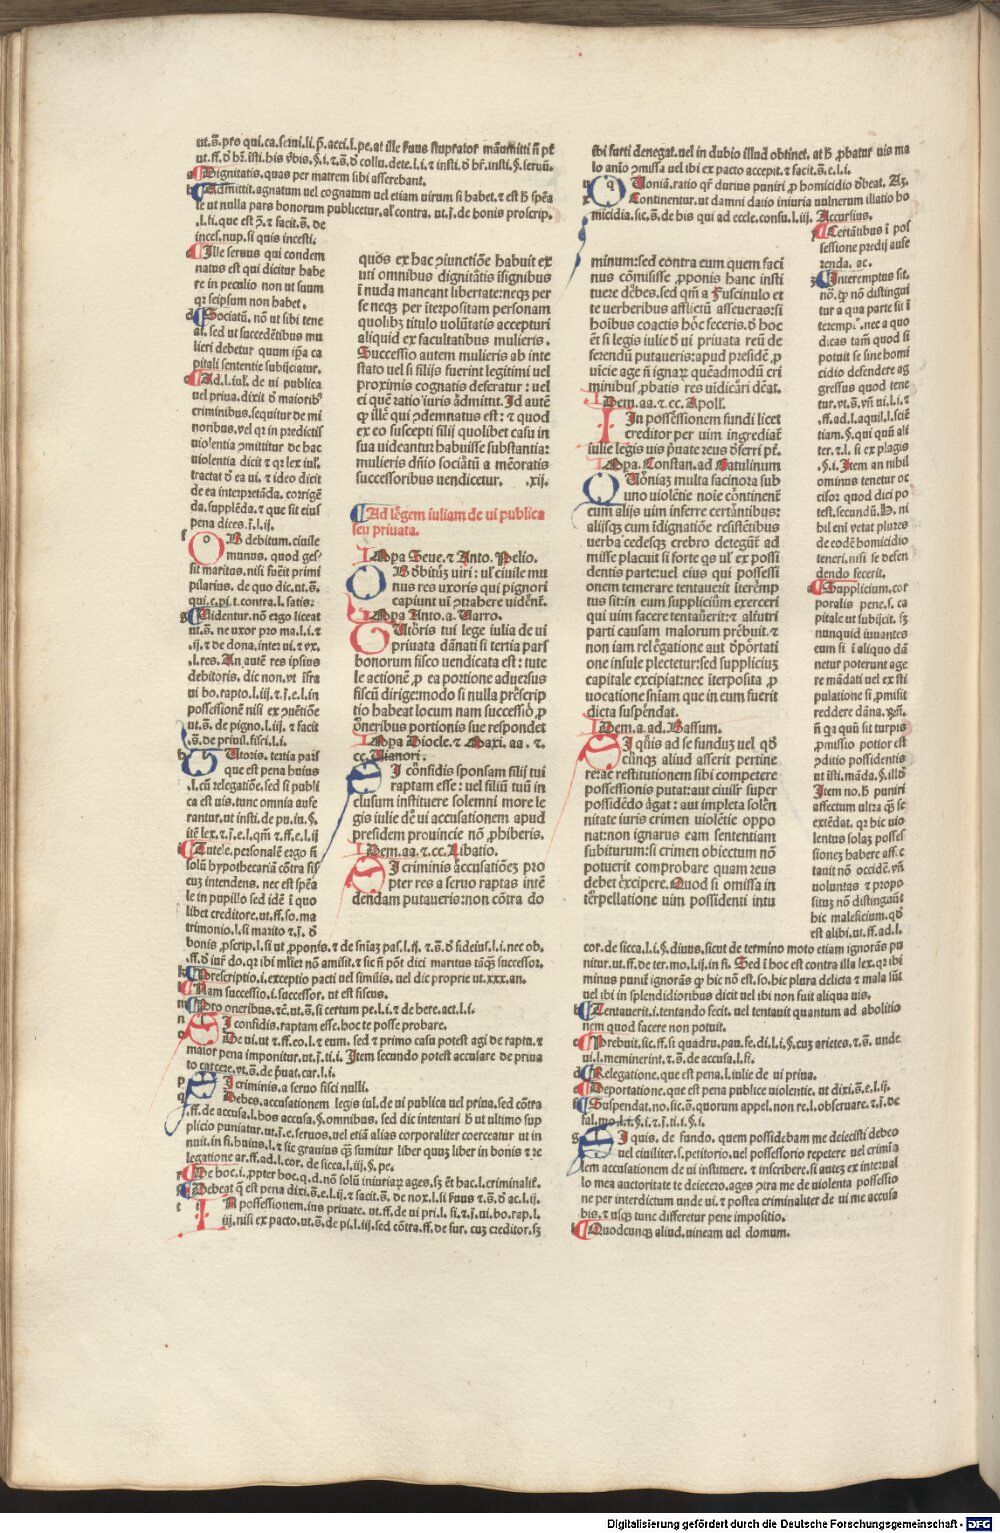 ut.s̄.pro qui.ca.serui.li.p̄.acci.l.pe.at ille suus stuprator manumitti n̄ pt
ut.ff.ð hr̄.isti.his v̄bis.§.i.⁊.s̄.ð collu.dete.l.i.⁊ insti.ð hr̄.insti.§.seruu.
Dignitatis.quas per matrem sibi asserebant.
Admittit.agnatum uel cognatum uel etiam uirum si habet.⁊ est h̄ spēa
le ut nulla pars bonorum publicetur.al' contra.ut.j.de bonis proscrip.
.l.si.que est ꝯ.⁊ facit.s̄. de
incest.nup.si quis incesti.
Ille seruus qui condem
natus est qui dicitur habe
re in peculio non ut suum
qꝛ seipsum non habet.
Sociatū. nō ut sibi tene
at.sed ut succedētibus mu
lieri debetur quum ip̄a ca
pitali sententie subijciatur.
Ad.l.iul'. de ui publica
uel priua.dixit ð maiorib'
criminibus.sequitur de mi
noribus.vel qꝛ in predictis
uiolentia ꝯmittitur de hac
uiolentia dicit ⁊ qꝛ lex iul'.
tractat ð ea ui. ⁊ ideo dicit
de ea interpretāda. corrigē
da.supplēda.⁊ que sit eius
pena dices.j.l.ij.
OB debitum.ciuile
munus. quod ges
sit maritus.nisi fuerit primi
pilarius. de quo dic.ut.s̄.
qui.e.pi.t.contra.l.satis:
Uidentur.nō ergo liceat
ut.s̄. ne uxor pro ma.l.i.⁊
.ij.⁊ de dona.inter ui.⁊ vx.
.l.res. An autē res ipsius
debitoris. dic non.vt īfra
ui bo.rapto.l.iij.⁊.j.e.l.in
possessionē nisi ex ꝯuētiōe
ut.s̄. de pigno.l.iij. ⁊ facit
.s̄.de priuil.fisci.l.i.
Tutoris. tertia pars
que est pena huius
.l.cū relegatiōe.sed si publi
ca est uis.tunc omnia aufe
rantur.ut insti.de pu.iu.§.
itē lex.⁊.j.e.l.qm̄ ⁊ ff.e.l.ij
Tutele.personalē ergo s̄i
solū hypothecariā cōtra fis
cuꝫ intendens. nec est spēa
le in pupillo sed idē i quo
libet creditore.ut.ff.so.ma
trimonio.l.si marito ⁊.j. ð
bonis ꝓscrip.l.si ut ꝓponis.⁊ de sniaꝫ pas.l.ij.⁊.s̄.ð fideius.l.i.nec ob.
.ff.ð iur̄ do.qꝛ ibi mlier nō amisit.⁊ sic n̄ pōt dici maritus tāqꝫ successor.
Prescriptio.i.exceptio pacti uel similis. uel dic proprie ut.xxx.an.
Nam successio.i.successor. ut est fiscus.
Pro oneribus.⁊c̄.ut.s̄.si certum pe.l.i.⁊ de here.act.l.i.
SI confidis.raptam esse.hoc te posse probare.
De ui.ut ⁊ ff.eo.l.⁊ eum. sed ⁊ primo casu potest agi de raptu.⁊
maior pena imponitur.ut.j.ti.i. Item secundo potest accusare de priua
to carcere.vt.s̄.de p̄uat.car.l.i.
SI criminis.a seruo fisci nulli.
Debes.accusationem legis iul.de ui publica uel priua.sed cōtra
.ff.de accusa.l.hos accusa.§.omnibus. sed dic intentari h̄ ut ultimo sup
plicio puniatur.ut.j.e.seruos.uel etiā alias corporaliter coerceatur ut in
nuit.in fi.huius.l.⁊ sic grauius qꝫ sumitur liber quuꝫ liber in bonis ⁊ re
legatione ar.ff.ad.l.cor. de sicca.l.iij.§.pe.
De hoc.i.ꝓpter hoc.q.d.nō solū iniuriaꝝ ages.sꝫ et̄ hac.l.criminalit̄.
Debeat q̄ est pena dixi.s̄.e.l.ij.⁊ facit.s̄. de nox.l.si suus ⁊.s̄.ð ac.l.ij.
IN possessionem.ius priuate. ut.ff.de ui pri.l.si.⁊.j.ui.bo.rap.l.
iij.nisi ex pacto.ut.s̄.de pi.l.iij.sed cōtra.ff.de fur. cuꝫ creditor.sꝫ
quos ex hac ꝯiunctiōe habuit ex
uti omnibus dignitatis īsignibus
i nuda maneant libertate:neqꝫ per
se neqꝫ per īterpositam personam
quolibꝫ titulo uolūtatis accepturi
aliquid ex facultatibus mulieris.
Successio autem mulieris ab inte
stato uel si filijs fuerint legitimi uel
proximis cognatis deferatur : uel
ei quē ratio iuris admittit. Id autē
qꝫ illē qui ꝯdemnatus est: ⁊ quod
ex eo suscepti filij quolibet casu in
sua uideantur habuisse substantia:
mulieris dn̄io sociatū a mēoratis
successoribus uendicetur. .xij.
Ad lēgem iuliam de vi publica
seu priuata.
Impa Seue.⁊ Anto. Pelio.
OB ðbitūꝫ uiri : ul' ciuile mu
nus res uxoris qui pignori
capiunt ui ꝯtrabere uident̄.
Impa Anto.a. Uarro.
TUtoris tui lege iulia de ui
priuata dānati si tertia pars
bonorum fisco uendicata est : tute
le actionē ꝓ ea portione aduersus
fiscū dirige:modo si nulla prescrip
tio habeat locum nam successio ꝓ
oneribus portionis sue respondet
Impa Diocle.⁊ Maxi. aa. ⁊.
cc. Tianori.
SI cōfidis sponsam filij tui
raptam esse : uel filiū tuū in
clusum instituere solemni more le
gis iulie de ui accusationem apud
presidem prouincie nō ꝓhiberis.
Idem.aa.⁊.cc. Libatio.
SI criminis accusatiōeꝫ pro
pter res a seruo raptas intē
dendam putaueris:non cōtra do
sibi furti denegat.uel in dubio illud obtinet. at h̄ ꝓbatur uis ma
lo anīo ꝯmissa uel ibi ex pacto accepit.⁊ facit.s̄.e.l.i.
QUoniā.ratio qr̄ durius puniri ꝓ homicidio ðbeat. Aꝫ.
Continentur.ut damni datio iniuria uulnerum illatio ho
micidia.sic.s̄.de his qui ad eccle.confu.l.iij. Accursius.
minum:sed contra eum quem faci
nus cōmisisse ꝓponis hanc insti
tuere debes.sed qm̄ a Fuscinulo et
te uerberibus afflictū asseueras:si
hoibus coactis hoc feceris.ð hoc
et si legis iulie ð ui priuata reū de
ferendū putaueris:apud presidē ꝓ
uicie age n̄ ignarꝰ quēadmodū cri
minibus ꝓbatis res uidicari dēat.
Idem.aa.⁊.cc. Apoll.
IN possessionem fundi licet
creditor per uim ingrediat̄
iulie legis uis p̄uate reus ðferri pt̄.
Impa. Constan.ad Catulinum
QUōniaꝫ multa facinora sub
uno uiolētie noīe cōtinent̄
cum alijs uim inferre certantibus:
alijsqꝫ cum īdignatiōe resistētibus
uerba cedesqꝫ crebro detegūt̄ ad
misse placuit si forte qs ul' ex possi
dentis parte:uel eius qui possessi
onem temerare tentauerit īterēmp
tus sit:in eum supplicium exerceri
qui uim facere tentauerit:⁊ alfutri
parti causam malorum prebuit.⁊
non iam relegatione aut ðportati
one insule plectetur:sed suppliciuꝫ
capitale excipiat:nec īterposita ꝓ
uocatione sniam que in eum fuerit
dicta suspendat.
Idem.a.ad. Bassum.
SI quis ad se funduꝫ uel qð
cunqꝫ aliud asserit pertine
re:ac restitutionem sibi competere
possessionis putat:aut ciuilr̄ super
possidēdo agat: aut impleta solen
nitate iuris crimen uiolētie oppo
nat:non ignarus eam sententiam
subiturum:si crimen obiectum nō
potuerit comprobare quam reus
debet excipere. Quod si omissa in
terpellatione uim possidenti intu
Certātibus i pos
sessione predij aufe
renda. ac.
Interemptus sit.
nō.qꝫ nō distingui
tur a qua parte sit i
teremp.nec a quo
dicas tam quod si
potuit se sine homi
cidio defendere ag
gressus quod tene
tur.vt.s̄.vn̄ ui.l.i.⁊
.ff.ad.l.aquil.l.sciē
tiam.§.qui quū ali
ter.⁊.l. si ex plagis
.§.i. Item an nihil
ominus tenetur oc
cisor quod dici po
test.secundū.H.ni
hil eni vetat plures
de eodē homicidio
teneri.nisi se defen
dendo fecerit.
Supplicium.cor
poralis pene.s. ca
pitale ut subijcit. sꝫ
nunquid iuuantes
eum si i aliquo dā
netur poterunt age
re mādati uel ex sti
pulatione si ꝓmisit
reddere dāna.rn̄.
n̄ qꝛ quū sit turpis
ꝓmissio potior est
ꝯditio possidentis
ut isti.māda.§.illð
Item no.h̄ puniri
affectum ultra qꝫ se
extēdat. qꝛ hic uio
lentus solaꝫ posses
sioneꝫ habere aff.c
tauit nō occidē.vn̄
uoluntas ⁊ propo
situꝫ nō distinguūt
hic maleficium.qð
est alibi.ut.ff.ad.l.
cor.de sicca.l.i.§.diuus.sicut de termino moto etiam ignorās pu
nitur.ut.ff.de ter.mo.l.ij.in fi. Sed i hoc est contra illa lex.qꝛ ibi
minus punit̄ ignorās qꝫ hic nō est.so.hic plura delicta ⁊ mala sūt
uel ibi in splendidioribus dicit uel ibi non fuit aliqua uis.
Tentauerit.i.tentando fecit. uel tentauit quantum ad abolitio
nem quod facere non potuit.
Prebuit.sic.ff.si quadru.pau.fe.di.l.i.§.cuꝫ arietes.⁊.s̄. unde
ui.l.meminerint.⁊.s̄.de accusa.l.fi.
Relegatione.que est pena.l.iulie de ui priua.
Deportatione.que est pena publice uiolentie. ut dixi.s̄.e.l.ij.
Suspendat.no.sic.s̄.quorum appel.non re.l.obseruare.⁊.j.de
fal.mo.l.i.§.i.⁊.j.ti.i.§.i.
SI quis. de fundo. quem possidebam me deiecisti debeo
uel ciuiliter.s.petitorio.uel possessorio repetere uel crimīa
lem accusationem de ui instituere. ⁊ inscribere.si auteꝫ ex interual
lo mea auctoritate te deiecero.ages ꝯtra me de uiolenta possessio
ne per interdictum unde ui.⁊ postea criminaliter de ui me accusa
bis.⁊ usqꝫ tunc differetur pene impositio.
Quodcunqꝫ aliud.uineam uel domum.
Digitalisierung gefördert durch die Deutsche Forschungsgemeinschaft - DFG